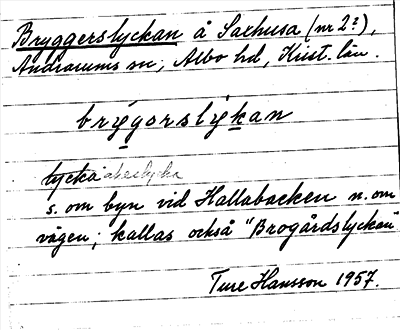 Bryggerslyckan å Saxhusa (nr 2?),
Andrarums sn, Albo hd, Krist. län.
brygorslykan
lycka åkerlycka
s. om byn vid Hallabacken n. om
vägen; kallas också "Brogårdslyckan"
Ture Hansson 1957.